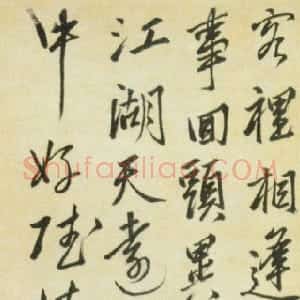 客裡相逢
事回頭異
江湖天遠
中好陸
ShufaZiliao.COM